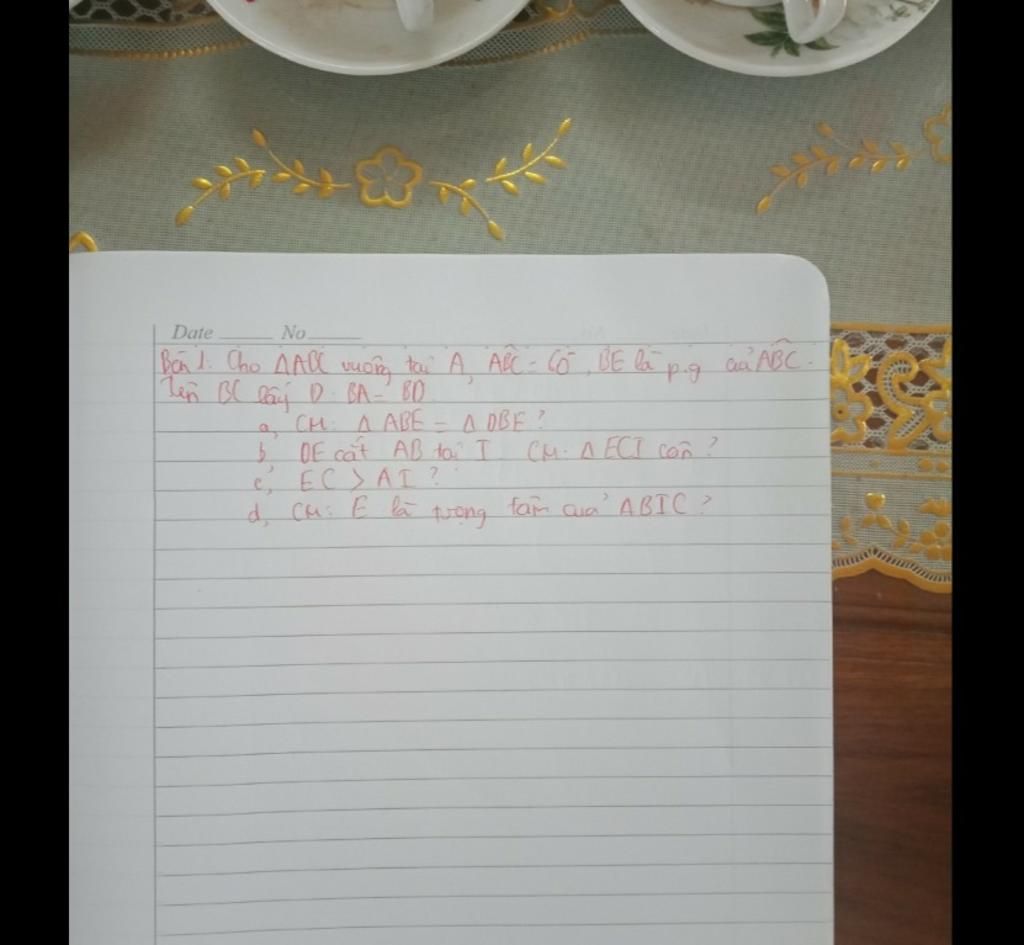 Date No
Bài 1. Cho ΔABC vuông tại A, ABC = 60, BE là p.g của ABC.
Trên BC lấy D. BA = BD
a, CM: Δ ABE = Δ DBE ?
b, DE cắt AB tại I CM. Δ ECI cân ?
c, EC > AI ?
d, CM: E là trọng tâm của ΔBIC ?